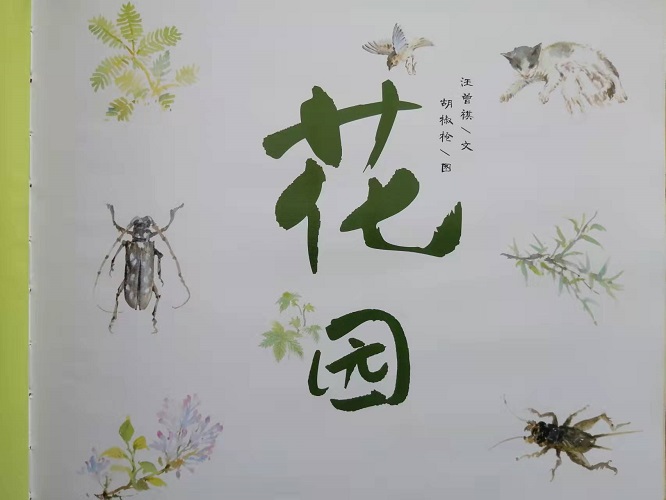 花园
汪曾祺\文
胡椒枪\图